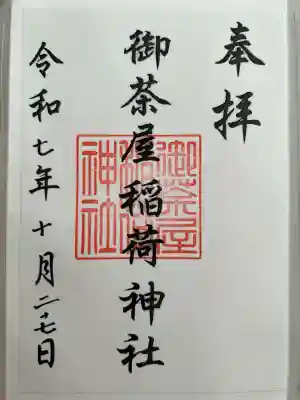 奉拝
御茶屋稲荷神社
御茶屋稲荷神社
令和七年十月二十七日